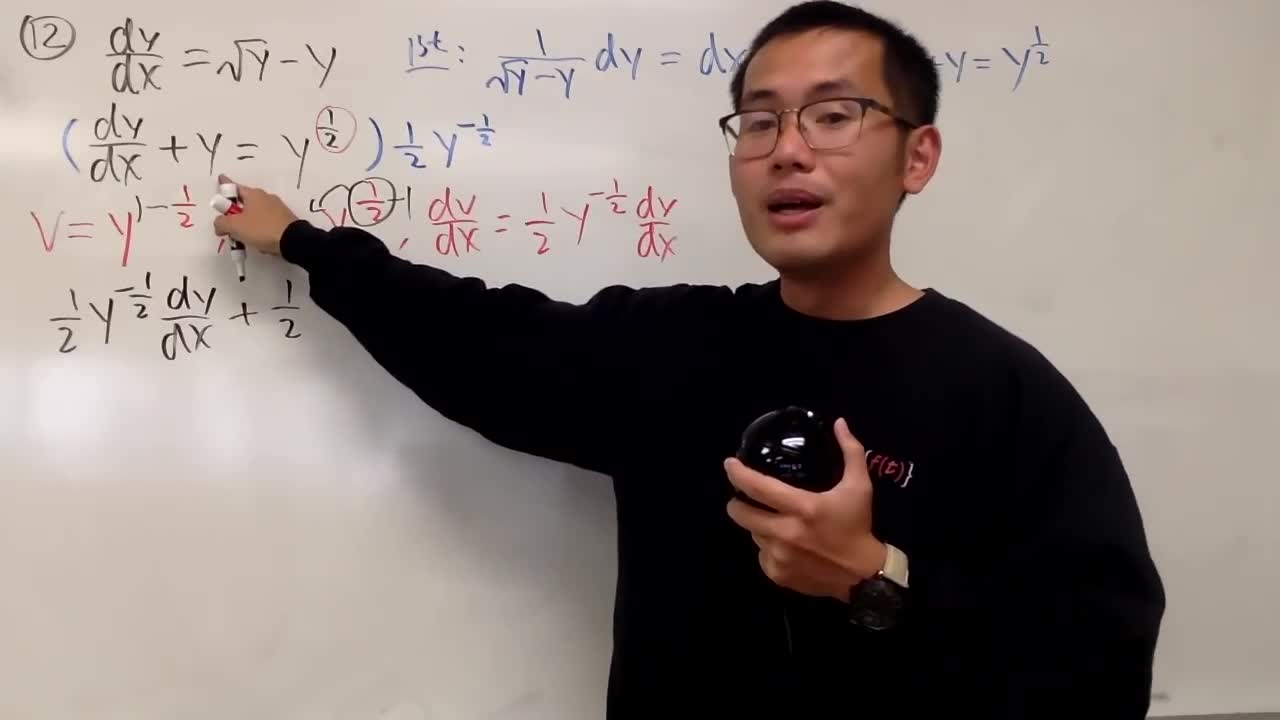 ⑫ dy/dx = √y - y 1st: 1/(√y - y) dy = dx +y = y^(1/2)
(dy/dx + y = y^(1/2)) 1/2 y^(-1/2)
v = y^(1-1/2), y^(1/2)-1, dv/dx = 1/2 y^(-1/2) dy/dx
1/2 y^(-1/2) dy/dx + 1/2
f(t)}